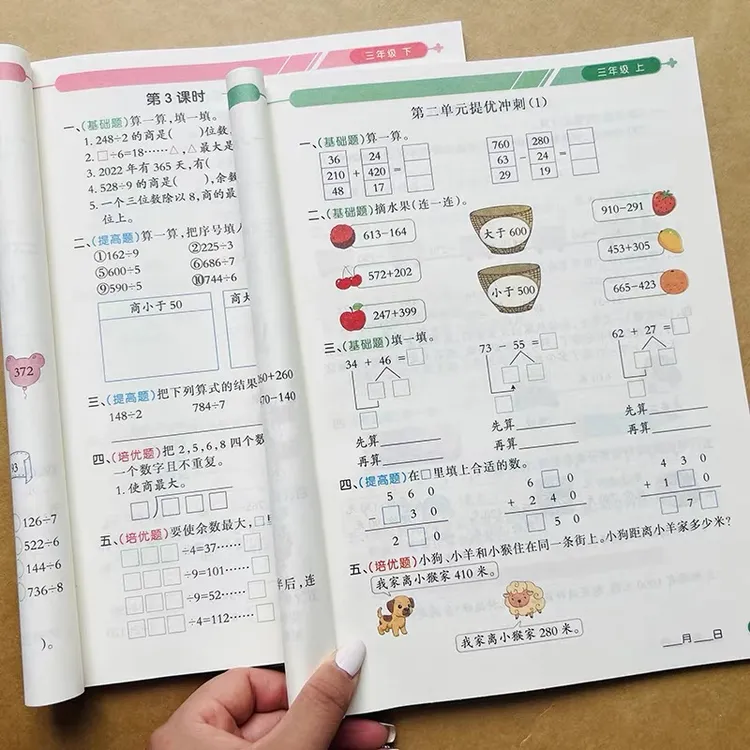 三年级 下
第 3 课时
一、(基础题)算一算,填一填。
1. 248÷2 的商是(　　)位数
2. □÷6=18……△,△最大是
3. 2022 年有 365 天,有(
4. 528÷9 的商是(　　),余数
5. 一个三位数除以 8,商的最
位上。
二、(提高题)算一算,把序号填
①162÷9 ②225÷3
⑤600÷5 ⑥686÷7
⑨590÷5 ⑩744÷6
商小于 50 商大
三、(提高题)把下列算式的结果
148÷2 784÷7
四、(培优题)把 2,5,6,8 四个数
一个数字且不重复。
1. 使商最大。
五、(培优题)要使余数最大,□里
□□□÷4=37……□
□□□÷9=101……□
□□□÷9=52……□
□□□÷4=112……□
372
93
126÷7
522÷6
144÷6
736÷8
)。
60+260
70-140
伴后,连
三年级 上
第二单元提优冲刺(1)
一、(基础题)算一算。
36 24 760 280
210 + 420 = 63 - 24 =
48 17 29 19
二、(基础题)摘水果(连一连)。
613-164 大于 600 910-291
572+202 453+305
247+399 小于 500 665-423
三、(基础题)填一填。
34 + 46 =□ 73 - 55 =□ 62 + 27 =□
先算 先算 先算
再算 再算 再算
四、(提高题)在□里填上合适的数。
5 6 0 6 □ 0 4 3 0
- □ 3 0 + 2 4 0 + 1 □ 0
2 □ 0 □ 5 0 □ 7 □
五、(培优题)小狗、小羊和小猴住在同一条街上。小狗距离小羊家多少米?
我家离小猴家 410 米。
我家离小猴家 280 米。
___月___日